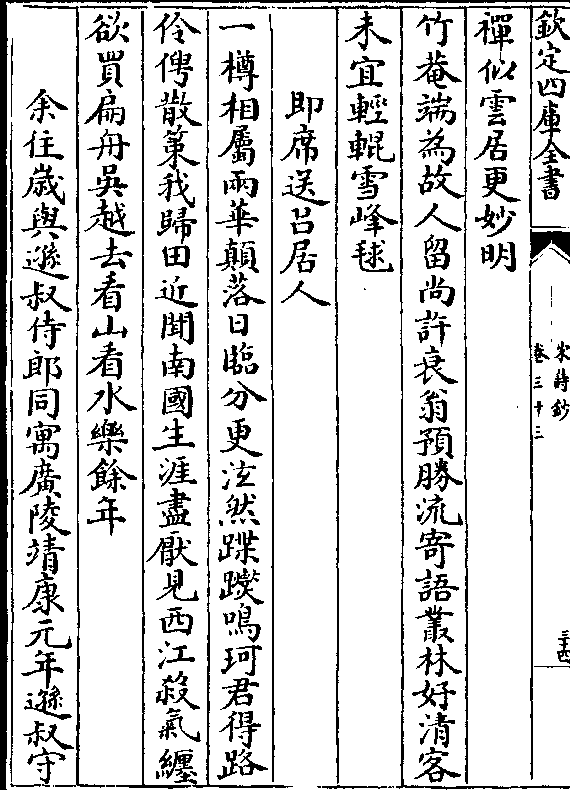 欽定四庫全書
宋詩鈔
卷三十三
三十四
禪似雲居更妙明
竹菴端為故人留尚許衰翁預勝流寄語叢林好清客
未宜輕輥雪峰毬
即席送吕居人
一樽相屬兩華顛落日臨分更泫然蹀躞鳴珂君得路
伶俜散策我歸田近聞南國生涯盡厭見西江殺氣纏
欲買扁舟吳越去看山看水樂餘年
余往歲與遜叔侍郎同寓廣陵靖康元年遜叔守